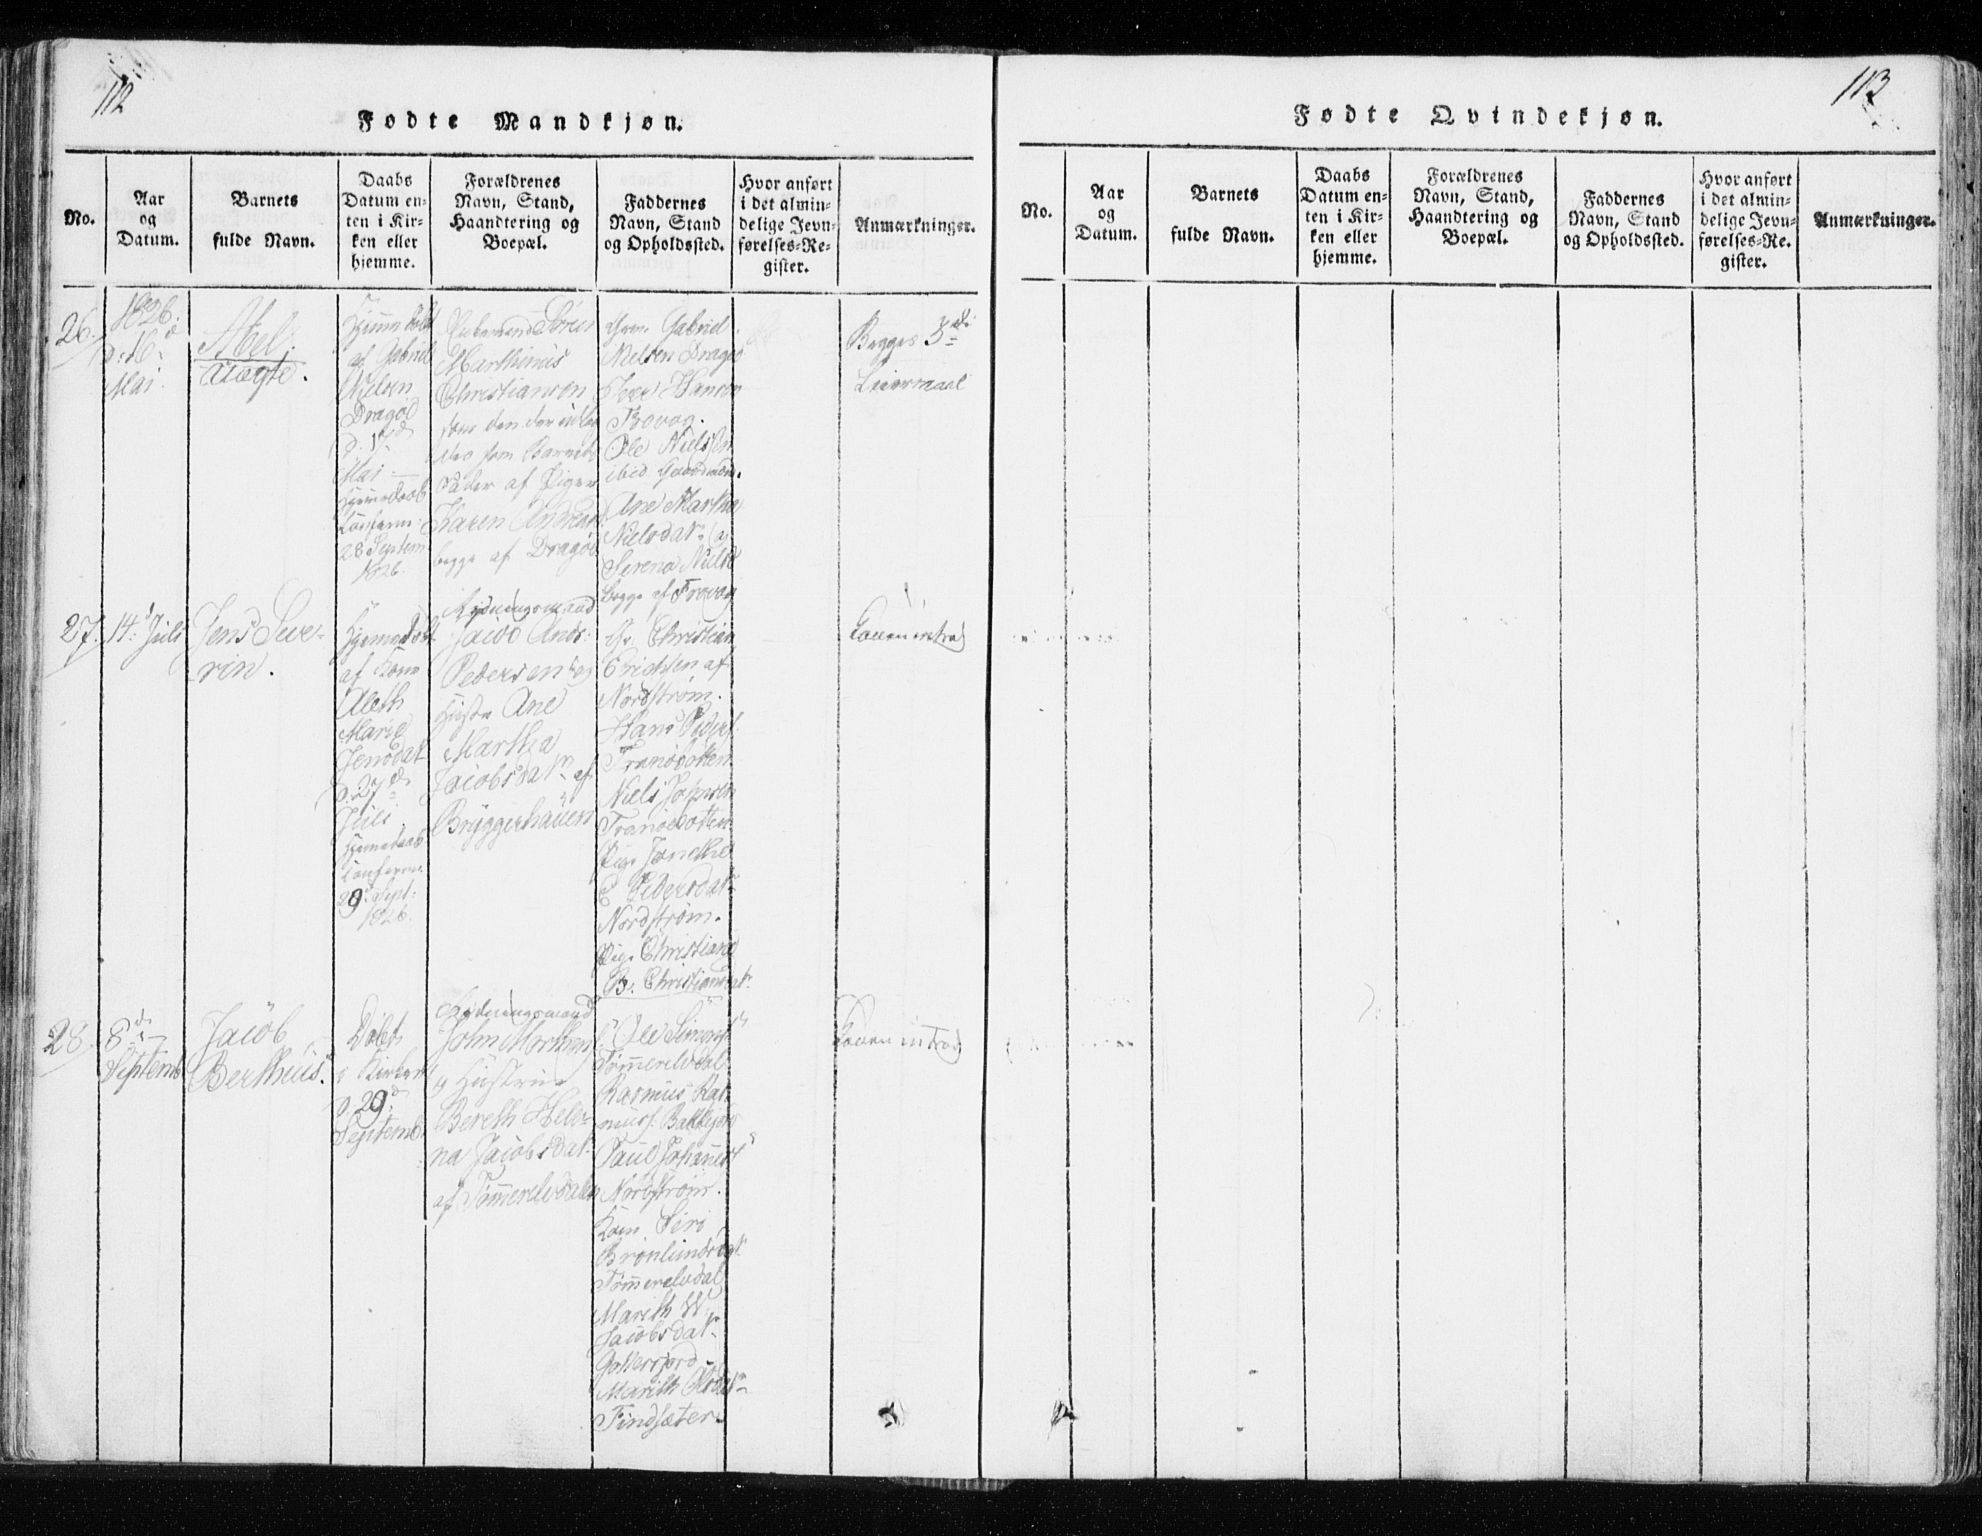 112
Fødte Mandkjøn.
No.
Aar
og
Datum.
Barnets
fulde Navn.
Daabs
Datum en-
ten i Kir-
ken eller
hjemme.
Forældrenes
Navn, Stand,
Haandtering og
Boepæl.
Faddernes
Navn, Stand
og Opholdssted.
Hvor anført
i det almin-
delige Jevn-
førelses-Re-
gister.
Anmærkninger.
26.
1826.
d. 16d
Mai.
Abel.
uægte.
Hjemedøbt
af Gabriel
Nielsen
Dragøe
d. 17d
Mai
Hjemedaab
Confirm.
28 Septem
1826.
Sören
Marthinus
Christiansøn
som Barnets
Fader af Pigen
Karen
begge af Dragøe
Gabriel
Nielsen Dragøe
Iver Hansen
Trovaag.
Ole Nielssen
ibid
Ane Martha
Nielsdatr
Serena Nielsd
begge af Trovaag
Begges 3die
Leiermaal
27.
14d Juli
Jens Seve-
rin.
Hjemedøbt
af Kone
Aleth
Marie
Jensdatr
d. 27de
Juli
Hjemedaab
Confirm.
29d Sept.
1826.
Rydningsmand
Jacob Ands:
Pedersen og
Hustr Ane
Martha
Jacobsdatr af
Bryggerhauen
Christian
Erichsen af
Nordstrøm.
Hans Peders
Tranøebotten
Niels Johnsen
Tranøebotten
Pige Jonethe
Pedersdatr
Nordstrøm.
Pige Christiane
B. Christiansdatr
28.
8de
Septemb
Jacob
Berthëus.
Døbt
i Kirken
d. 29d
Septemb.
Rydningsmand
John Morthen
og Hustrue
Bereth Hele-
na Jacobsdatr
af Tømmerelvdalen
Ole Simons
Tømmerelvdal
Rasmus Ras-
muss. Bakkejord
Paul Johannes
Nordstrøm.
Kone Siri
Tømmerelvdal
Marith W.
Jacobsdatr
Marith Olsdatr
Findsæter.
113
Fødte Qvindekjøn.
No.
Aar
og
Datum.
Barnets
fulde Navn.
Daabs
Datum en-
ten i Kir-
ken eller
hjemme.
Forældrenes
Navn, Stand,
Haandtering og
Boepæl.
Faddernes
Navn, Stand
og Opholdssted.
Hvor anført
i det almin-
delige Jevn-
førelses-Re-
gister.
Anmærkninger.